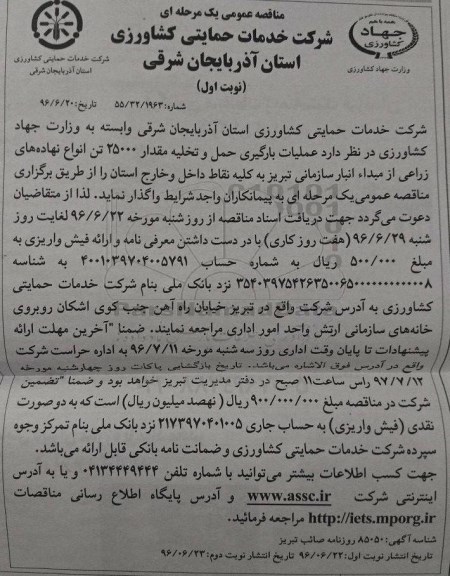 مناقصه عمومی یک مرحله ای
شرکت خدمات حمایتی کشاورزی
استان آذربایجان شرقی
(نوبت اول)
جهاد کشاورزی
وزارت جهاد کشاورزی
شرکت خدمات حمایتی کشاورزی
استان آذربایجان شرقی
شماره: ۵۵/۳۲/۱۹۶۳ تاریخ: ۹۶/۶/۲۰
شرکت خدمات حمایتی کشاورزی استان آذربایجان شرقی وابسته به وزارت جهاد
کشاورزی در نظر دارد عملیات بارگیری حمل و تخلیه مقدار ۲۵۰۰۰ تن انواع نهاده‌های
زراعی از مبداء انبار سازمانی تبریز به کلیه نقاط داخل وخارج استان را از طریق برگزاری
مناقصه عمومی‌یک مرحله ای به پیمانکاران واجد شرایط واگذار نماید. لذا از متقاضیان
دعوت می‌گردد جهت دریافت اسناد مناقصه از روز شنبه مورخه ۹۶/۶/۲۲ لغایت روز
شنبه ۹۶/۶/۲۹ (هفت روز کاری) با در دست داشتن معرفی نامه و ارائه فیش واریزی به
مبلغ ۵۰۰/۰۰۰ ریال به شماره حساب ۴۰۰۱۰۳۹۷۰۴۰۰۵۷۹۱ به شناسه
نزد بانک ملی بنام شرکت خدمات حمایتی
کشاورزی به آدرس شرکت واقع در تبریز خیابان راه آهن جنب کوی اشکان روبروی
خانه‌های سازمانی ارتش واحد امور اداری مراجعه نمایند. ضمنا "آخرین مهلت ارائه
پیشنهادات تا پایان وقت اداری روز سه شنبه مورخه ۹۶/۷/۱۱ به اداره حراست شرکت
واقع در آدرس فوق الاشاره می‌باشد.. تاریخ بازگشایی پاکات روز چهارشنبه مورخه
۹۷/۷/۱۲ راس ساعت۱۱ صبح در دفتر مدیریت تبریز خواهد بود و ضمنا "تضمین
شرکت در مناقصه مبلغ ۹۰۰/۰۰۰/۰۰۰ ریال ( نهصد میلیون ریال) است که به دو صورت
نقدی (فیش واریزی) به حساب جاری ۲۱۷۳۹۷۰۴۰۱۰۰۵ نزد بانک ملی بنام تمرکز وجوه
سپرده شرکت خدمات حمایتی کشاورزی و ضمانت نامه بانکی قابل ارائه می‌باشد.
جهت کسب اطلاعات بیشتر می‌توانید با شماره تلفن ۰۴۱۳۴۴۴۹۴۴۴ و یا به آدرس
اینترنتی شرکت www.assc.ir و آدرس پایگاه اطلاع رسانی مناقصات
http://iets.mporg.ir مراجعه فرمائید.
شناسه آگهی: ۸۵۰۵۰ روزنامه صائب تبریز
تاریخ انتشار نوبت اول: ۹۶/۰۶/۲۲ تاریخ انتشار نوبت دوم: ۹۶/۰۶/۲۳